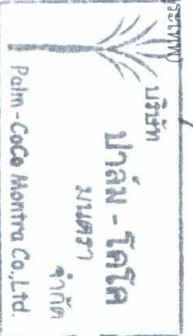 บริษัท
ปาล์ม - โคโค่
มนตรา
จำกัด
Palm - CoCo Montra Co.,Ltd.